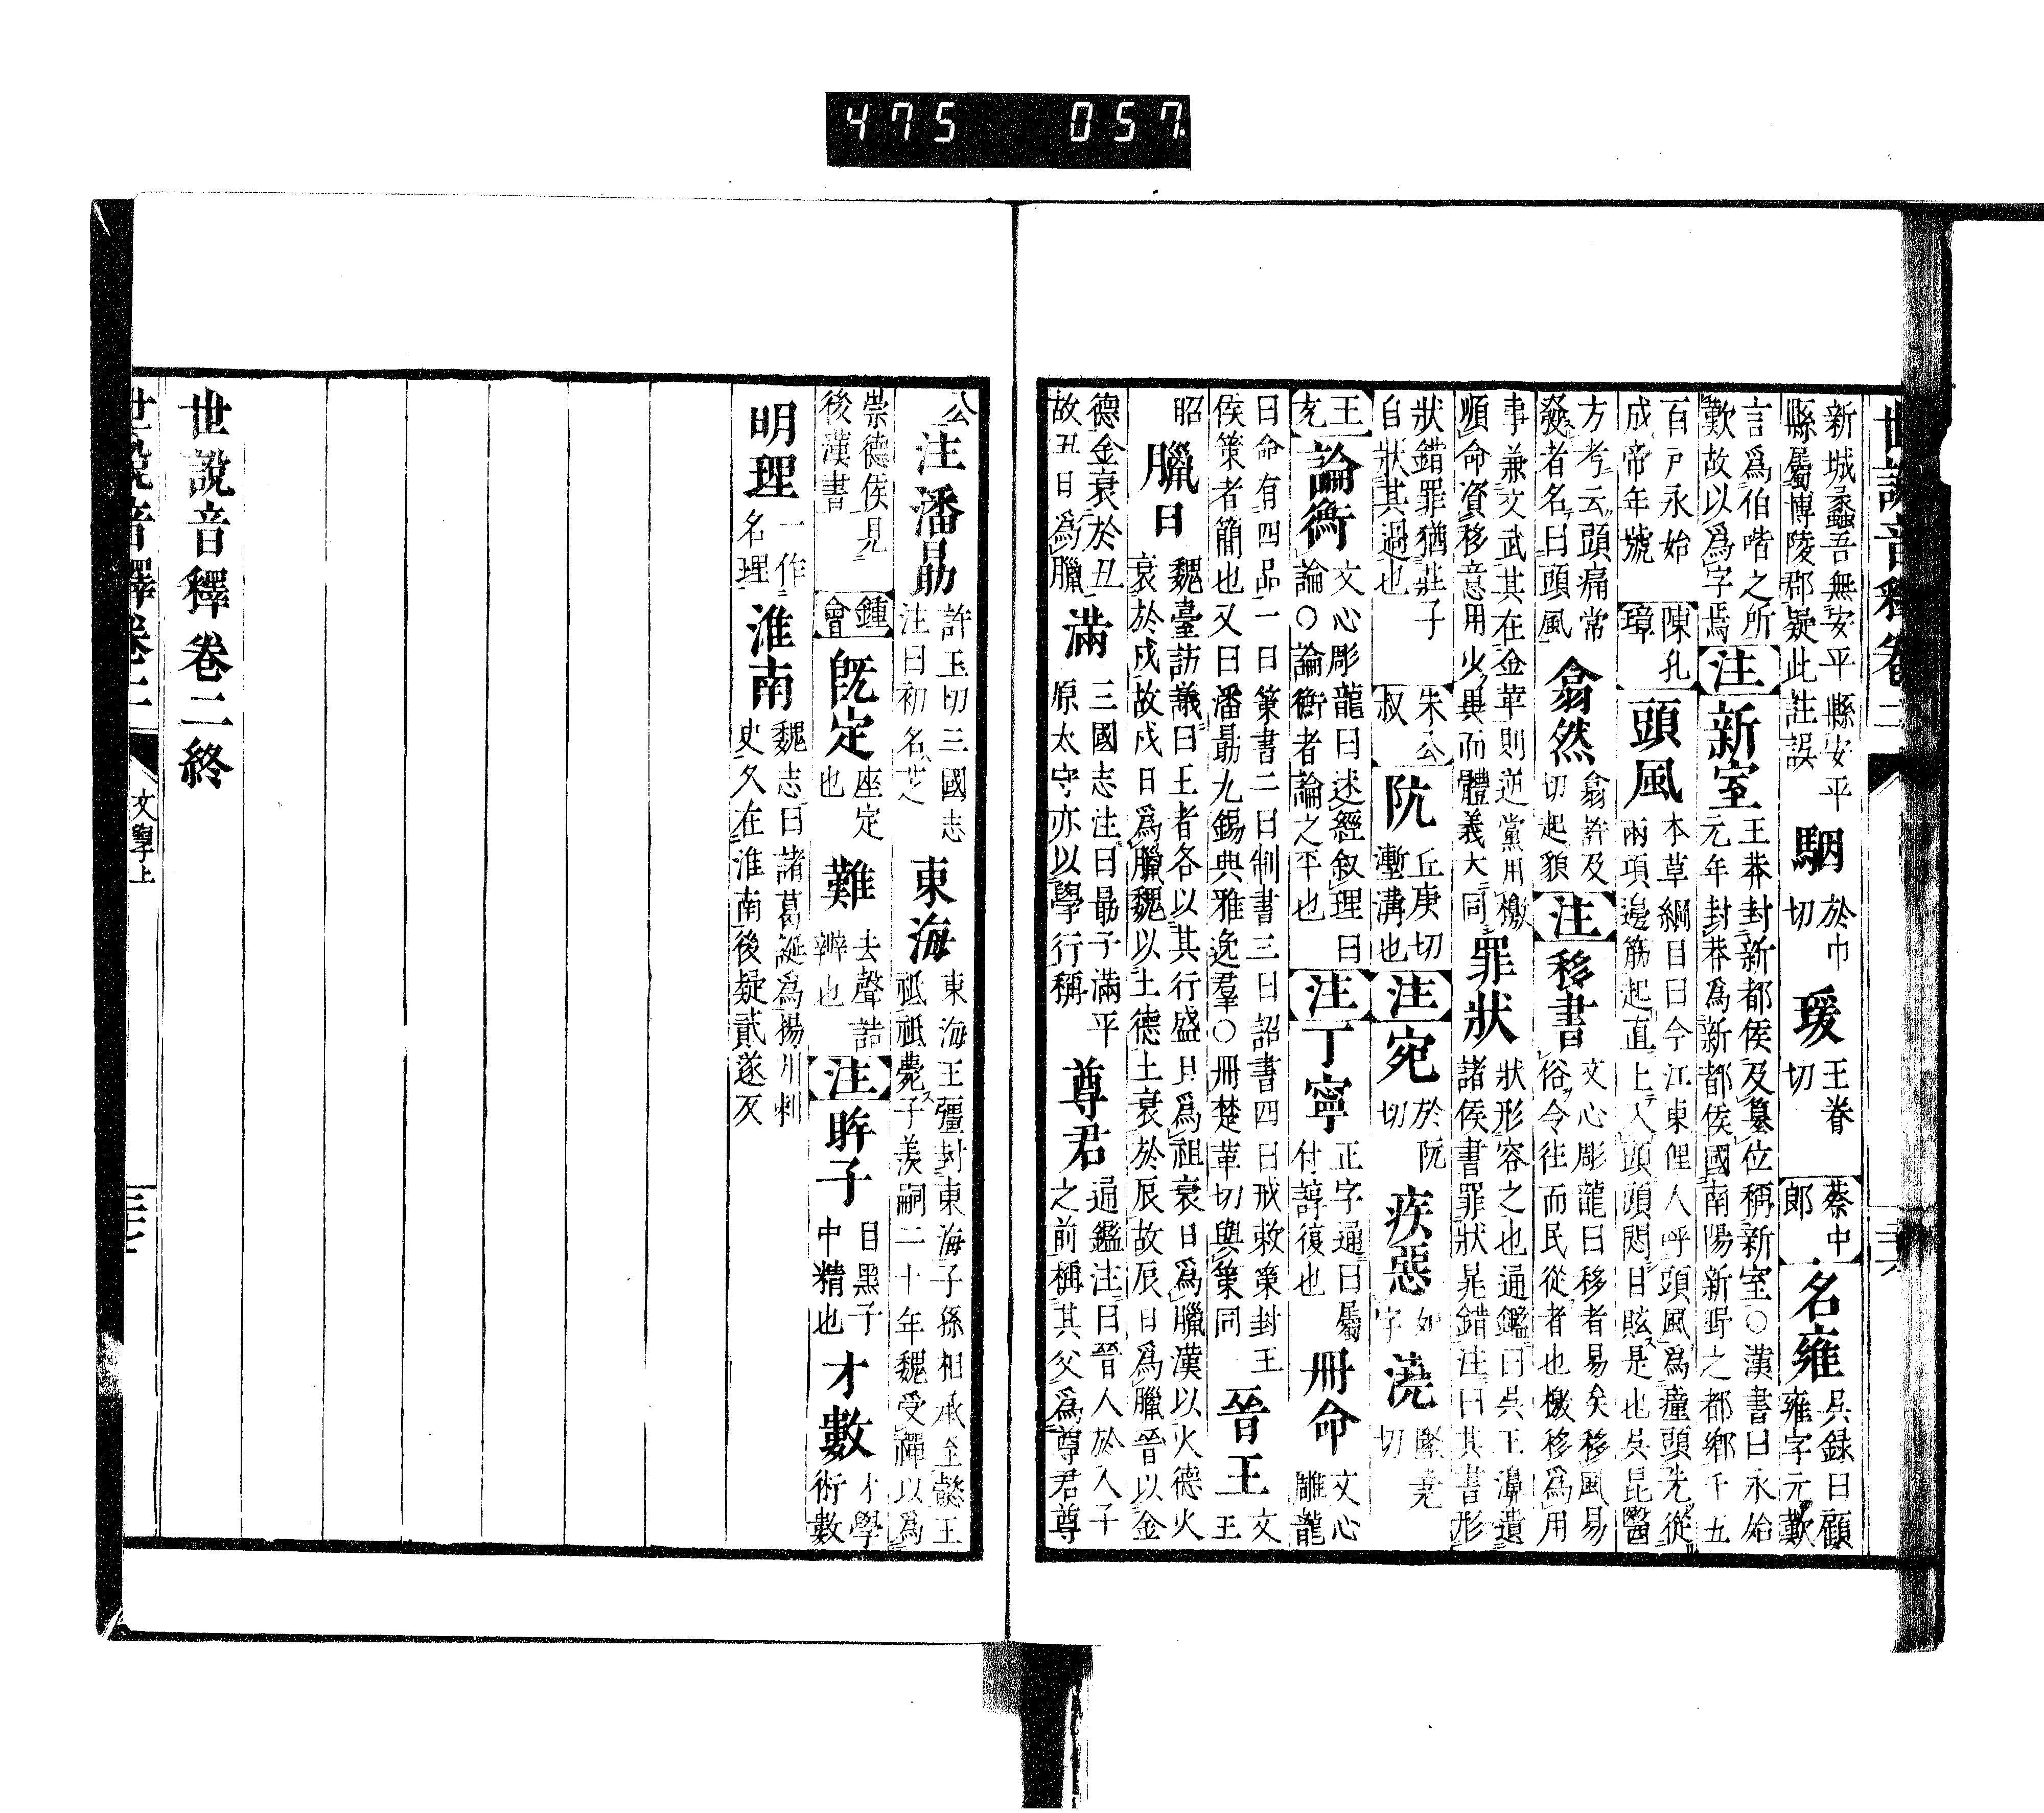 475 057
世說音釋卷二
新城蠡吾無安平縣安平
縣屬博陵郡疑此註誤
駰
於巾
切
瑗
王眷
切
蔡中
郎
名雍
吳錄曰顧
雍字元歎
言爲伯喈之所
歎故以爲字焉
注
新室
王莽封新都侯及簒位稱新室○漢書曰永始
元年封莽爲新都侯國南陽新野之都鄉千五
百戸永始
成帝年號
陳孔
璋
頭風
本草綱目曰今江東俚人呼頭風爲瘇頭先從
兩項邊筋起直上入頭頭悶目眩是也吳昆醫
方考云頭痛常
發者名曰頭風
翕然
翕許及
切起貌
注
移書
文心彫龍曰移者易矣移風易
俗令往而民從者也檄移爲用
事兼文武其在金革則逆黨用檄
順命資移意用小異而體義大同
罪狀
狀形容之也通鑑曰吳王濞遺
諸侯書罪狀晁錯注曰其書形
狀錯罪猶莊子
自狀其過也
朱公
叔
阬
丘庚切
壍溝也
注
宛
於阮
切
疾惡
如
字
澆
堅堯
切
王
充
論衡
文心彫龍曰述經叙理曰
論○論衡者論之平也
注
丁寧
正字通曰屬
付諄復也
冊命
文心
雕龍
曰命有四品一曰策書二曰制書三曰詔書四曰戒敕策封王
侯策者簡也又曰潘勗九錫典雅逸羣○冊楚革切與策同
晉王
文
王
昭
臘日
魏臺訪議曰王者各以其行盛日爲祖衰日爲臘漢以火德火
衰於戌故戌日爲臘魏以土德土衰於辰故辰日爲臘晉以金
德金衰於丑
故丑日爲臘
滿
三國志注曰勗子滿平
原太守亦以學行稱
尊君
通鑑注曰晉人於人子
之前稱其父爲尊君尊
公
注
潘勗
許玉切三國志
注曰初名芝
東海
東海王彊封東海子孫相承至懿王
祗祗薨子羨嗣二十年魏受禪以爲
崇德侯見
後漢書
鍾
會
旣定
座定
也
難
去聲詰
辨也
注
眸子
目黑子
中精也
才數
才學
術數
明理
一作
名理
淮南
魏志曰諸葛誕爲揚州刺
史久在淮南後疑貳遂反
世說音釋卷二終
世說音釋卷二
文學上
三十七